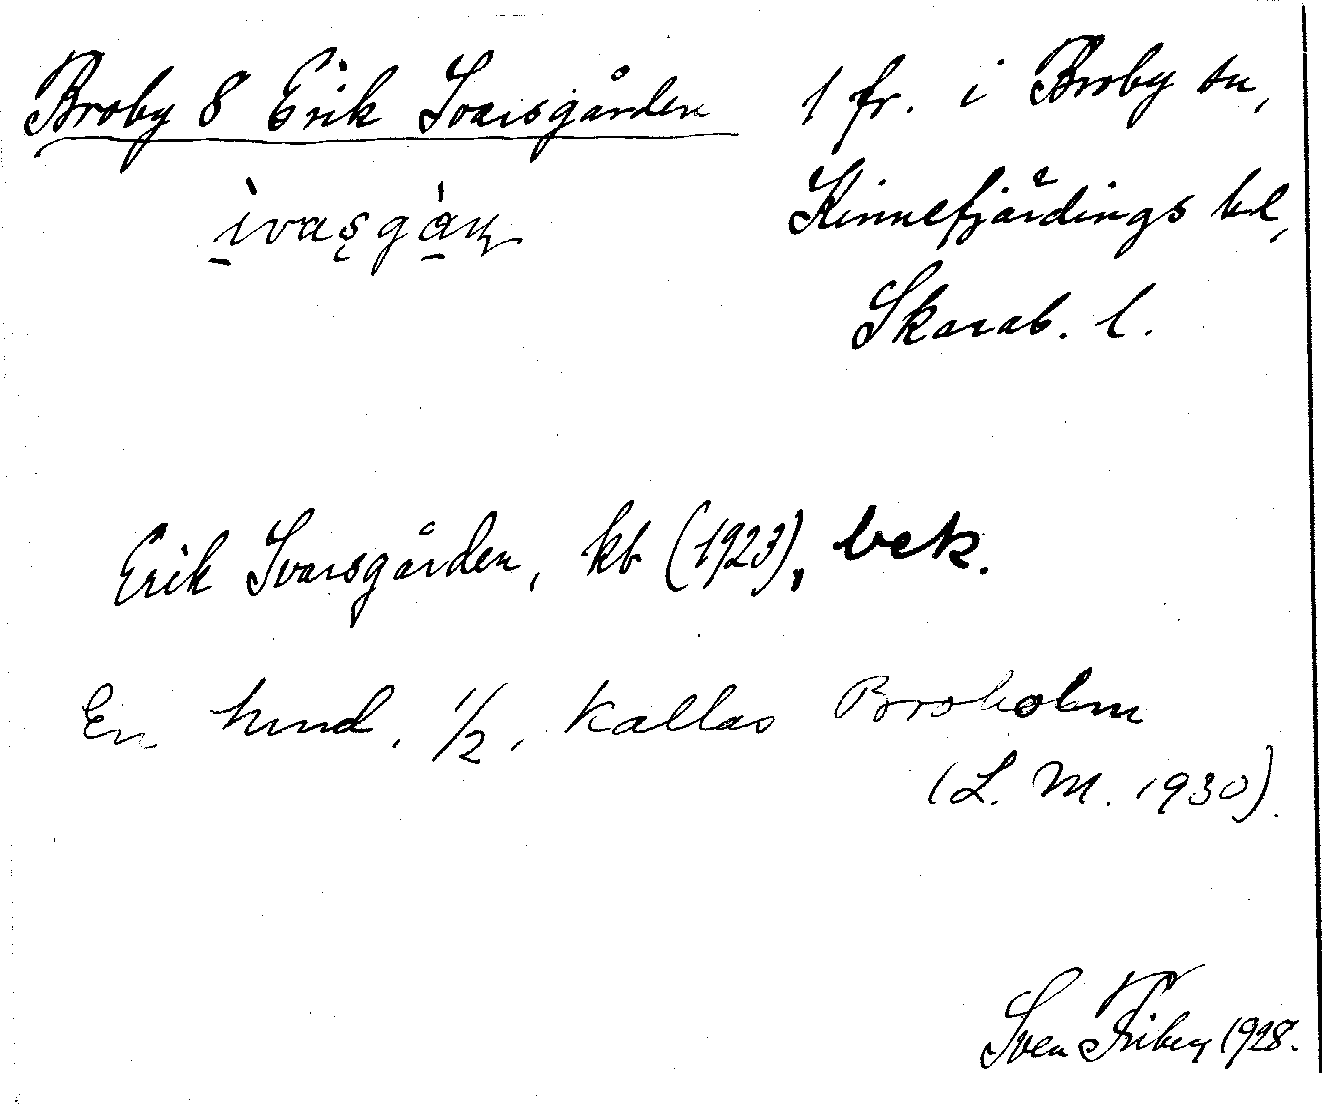 Broby 8 Erik Ivarsgården 1 fr. i Broby sn,
Kinnefjärdings hd,
Skarab. l.
Erik Ivarsgården, kb (1923), bek.
En hmd, 1/2, kallas Broholm
(L. M. 1930).
Sven Friberg 1928.